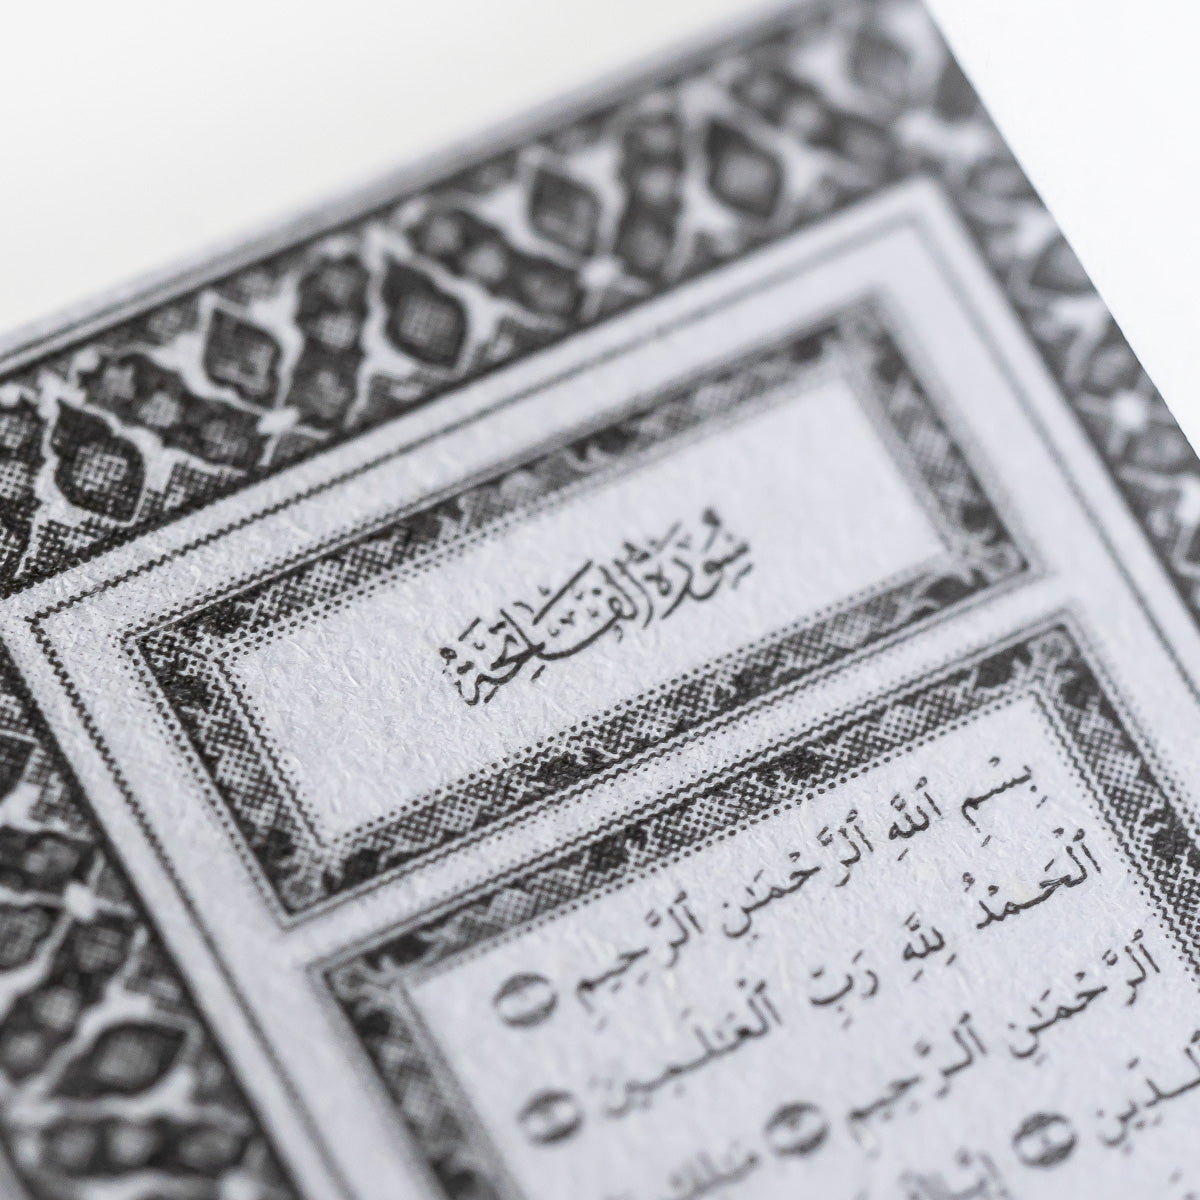 سُورَةُ الفَاتِحَةِ
بِسْمِ ٱللَّهِ ٱلرَّحْمَـٰنِ ٱلرَّحِيمِ
ٱلْحَمْدُ لِلَّهِ رَبِّ ٱلْعَـٰلَمِينَ
ٱلرَّحْمَـٰنِ ٱلرَّحِيمِ مَـٰلِكِ
ٱلدِّينِ